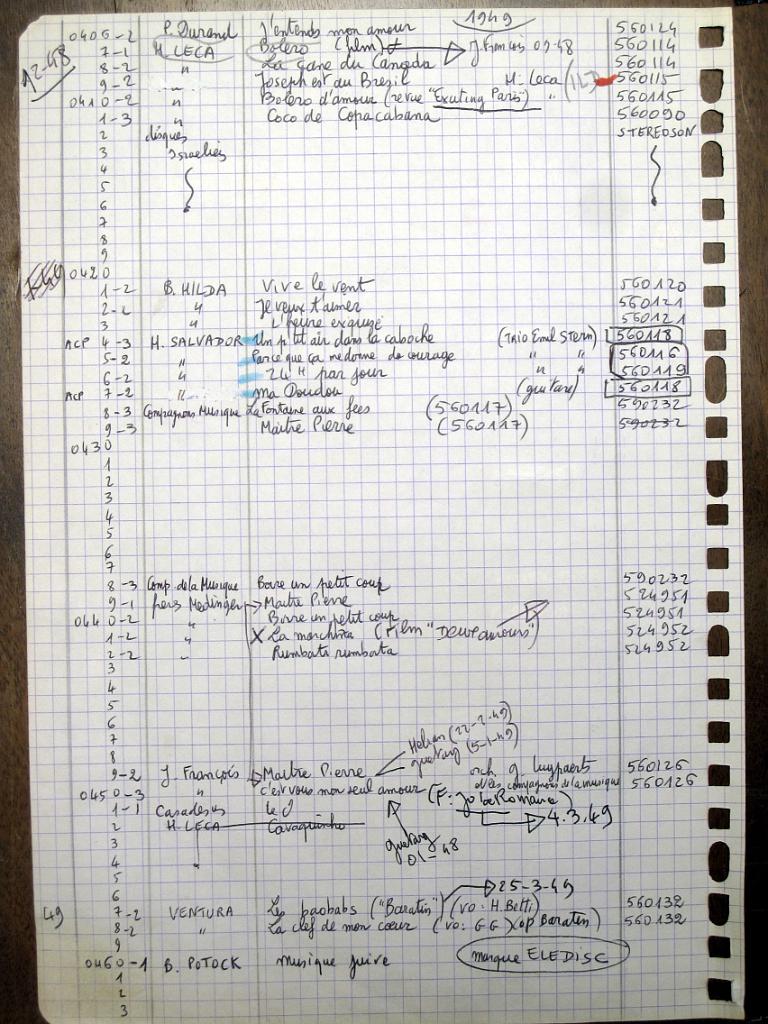 1949
12-48
0406-2 P. Durand J'entends mon amour 560124
7-1 H. LECA Bolero (film) J. François 560114
8-2 " La gane du Canada 560114
9-2 " Joseph est au Bresil H. Leca 560115
0410-2 " Bolero d'amour (revue "Exciting Paris") " 560115
1-3 " Coco de Copacabana 560090
2 disques STEREOSON
3 Israeliés
4
5
6
7
8
9
0420
1-2 B. HILDA Vive le vent 560120
2-2 " Je veux t'aimer 560121
3 " L'heure exquise 560121
ACP 4-3 H. SALVADOR Un p'tit air dans la caboche (TRIO Emil Stern) 560118
5-2 " Parce que ça me donne du courage " " 560116
6-2 " 24 H par jour " " 560119
ACP 7-2 " Ma Doudou (guitare) 560118
8-3 Compagnons Musique La Fontaine aux fees (560117) 590232
9-3 Maitre Pierre (560117) 590232
0430
1
2
3
4
5
6
7
8-3 Comp. de la Musique Boire un petit coup 590232
9-1 freres Medinger Maitre Pierre 524951
0440-2 " Boire un petit coup 524951
1-2 " X La marchina (Film "Deux amours") 524952
2-2 " Rumbata rumbata 524952
3
4
5
6
7
8
Helian (22-2-49)
guetary (5-1-49)
9-2 J. François Maitre Pierre orch. J. Luypaerts 560126
0450-3 " c'est vous mon seul amour d'les compagnons de la musique 560126
(F: "Jo la Romance)
1-1 Casadesus Le J 4.3.49
2 H. LECA Cavaquinho
3 guetary
4 01-48
5
6
25-3-49
49 7-2 VENTURA Les baobabs ("Baratin") (vo: H. Betti) 560132
8-2 " La clef de mon cœur (vo: GG) (op Baratin) 560132
9
0460-1 B. POTOCK musique juive marque ELEDISC
1
2
3